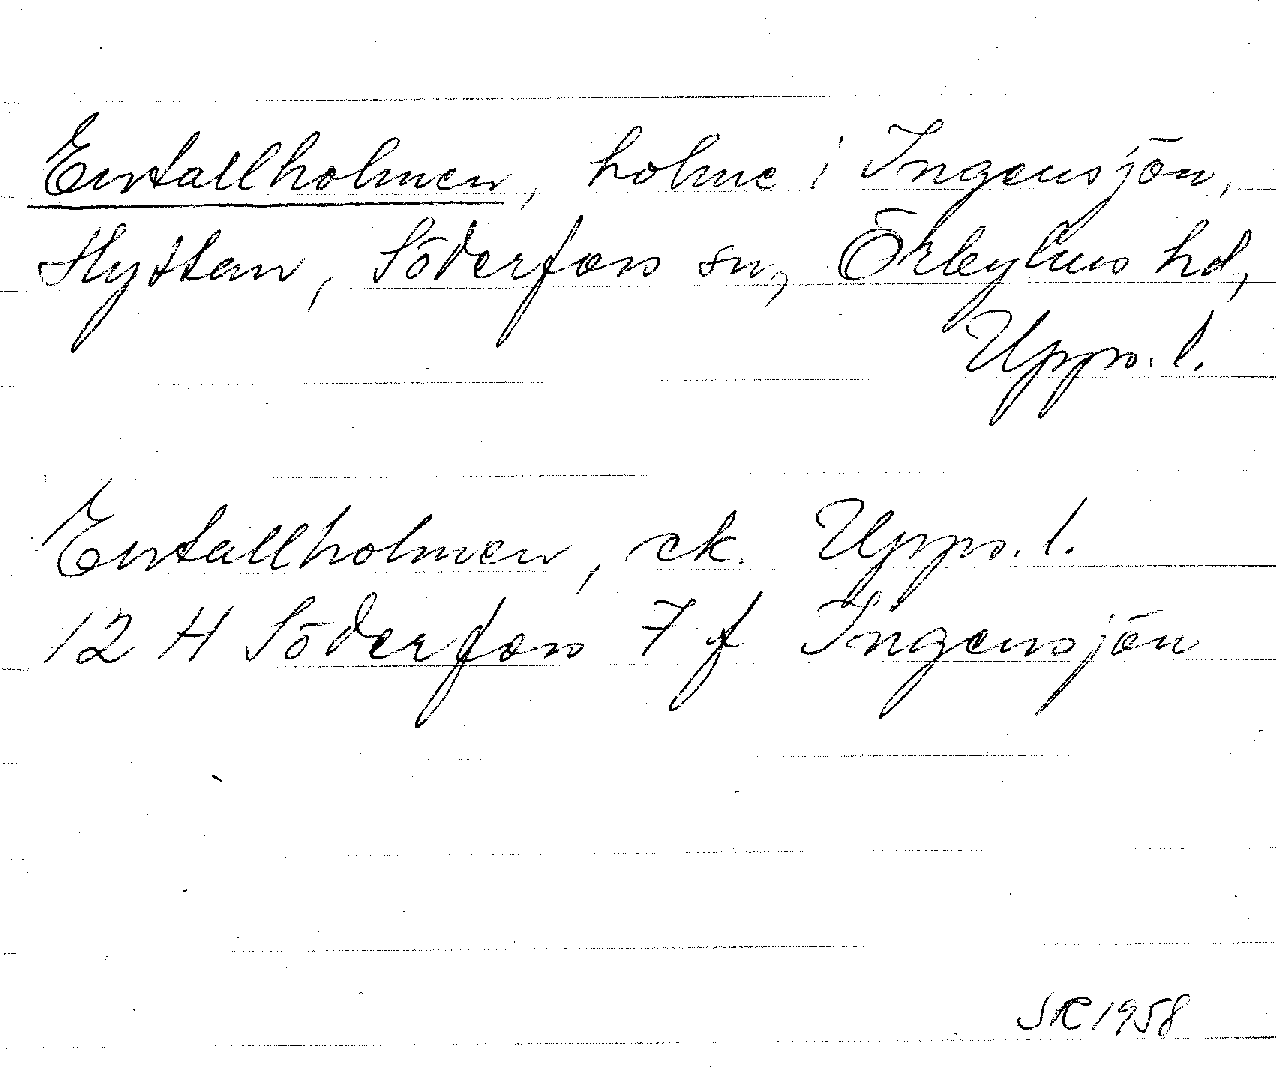 Enstallholmen, holme i Ingensjön,
Hyttan, Söderfors sn, Örbyhus hd,
Upps. l.
Enstallholmen, ek. Upps. l.
12 H Söderfors 7 f Ingensjön
SR 1958